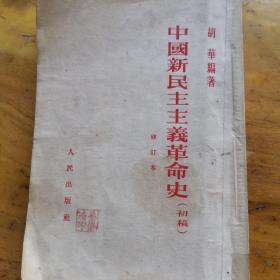 胡華編著
中國新民主主義革命史（初稿）
修訂本
人民出版社